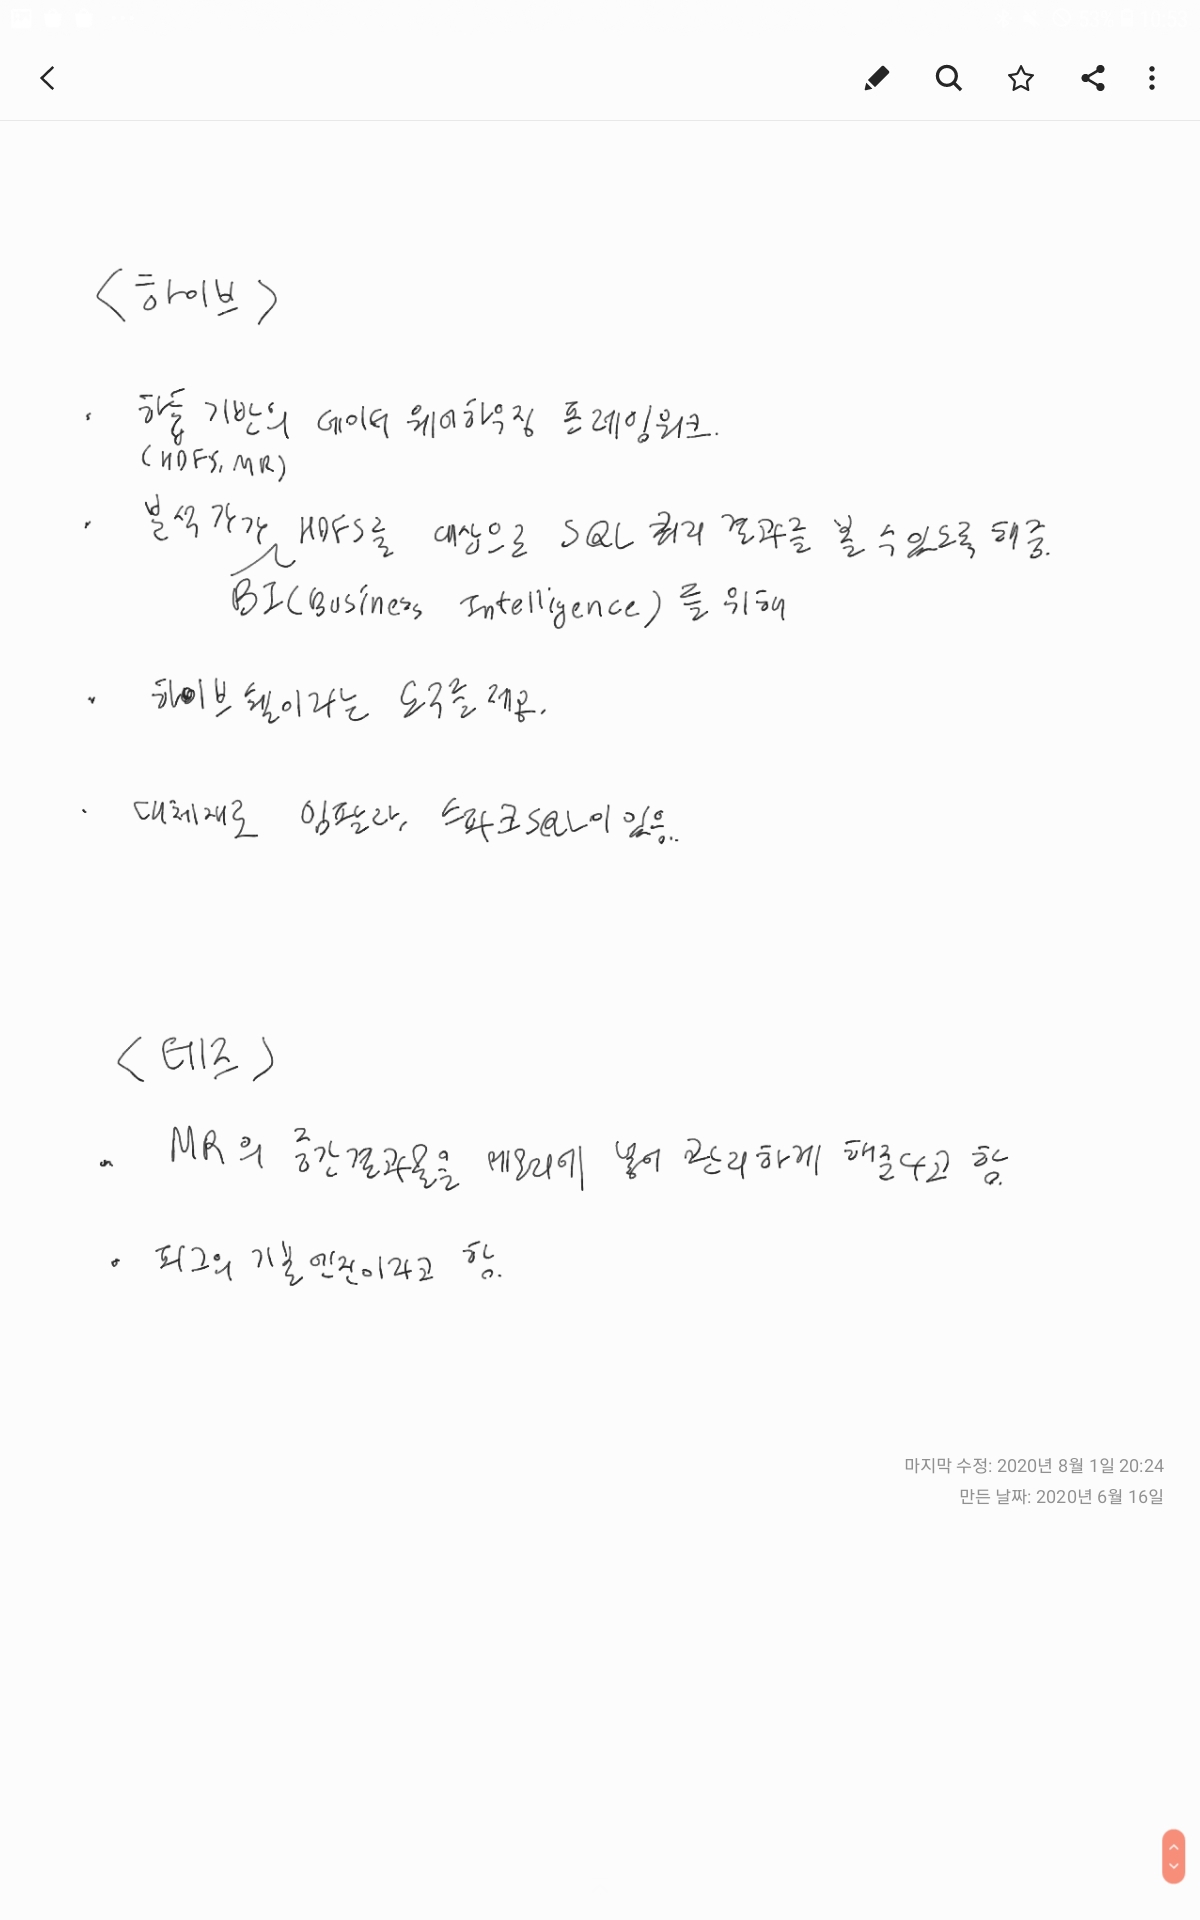 <하이브>
· 하둡 기반의 데이터 웨어하우징 프레임워크.
(HDFS, MR)
· 분석가가 HDFS를 대상으로 SQL 쿼리 결과를 볼 수 있도록 해줌.
BI(Business Intelligence)를 위해
· 하이브 쉘이라는 도구를 제공.
· 대체재로 임팔라, 스파크SQL이 있음..
<테즈>
· MR의 중간결과물을 메모리에 넣어 관리하게 해준다고 함.
· 피그의 기본 엔진이라고 함.
마지막 수정: 2020년 8월 1일 20:24
만든 날짜: 2020년 6월 16일